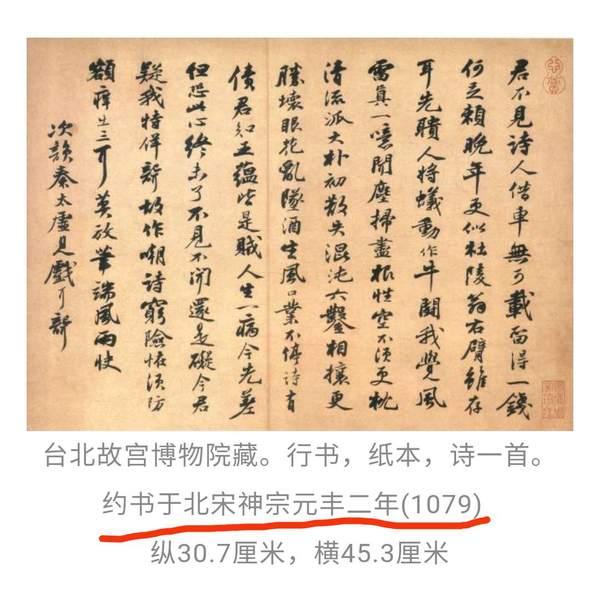 君不見詩人借車無可載留得一錢
何足賴晚年更似杜陵翁右臂雖存
耳先聵人將蟻動作牛鬬我覺風
雷真一噫聞塵掃盡根性空不須更枕
清流派大朴初散失混沌六鑿相攘更
勝壞眼花亂墜酒生風口業不停詩有
債君知五蘊皆是賊人生一病今先差
但恐此心終未了不見不聞還是礙今君
疑我特佯聾故作嘲詩窮險怪須防
額癢出三耳莫放筆端風雨快
次韻秦太虛見戲耳聾
台北故宫博物院藏。行书，纸本，诗一首。
约书于北宋神宗元丰二年(1079)
纵30.7厘米，横45.3厘米